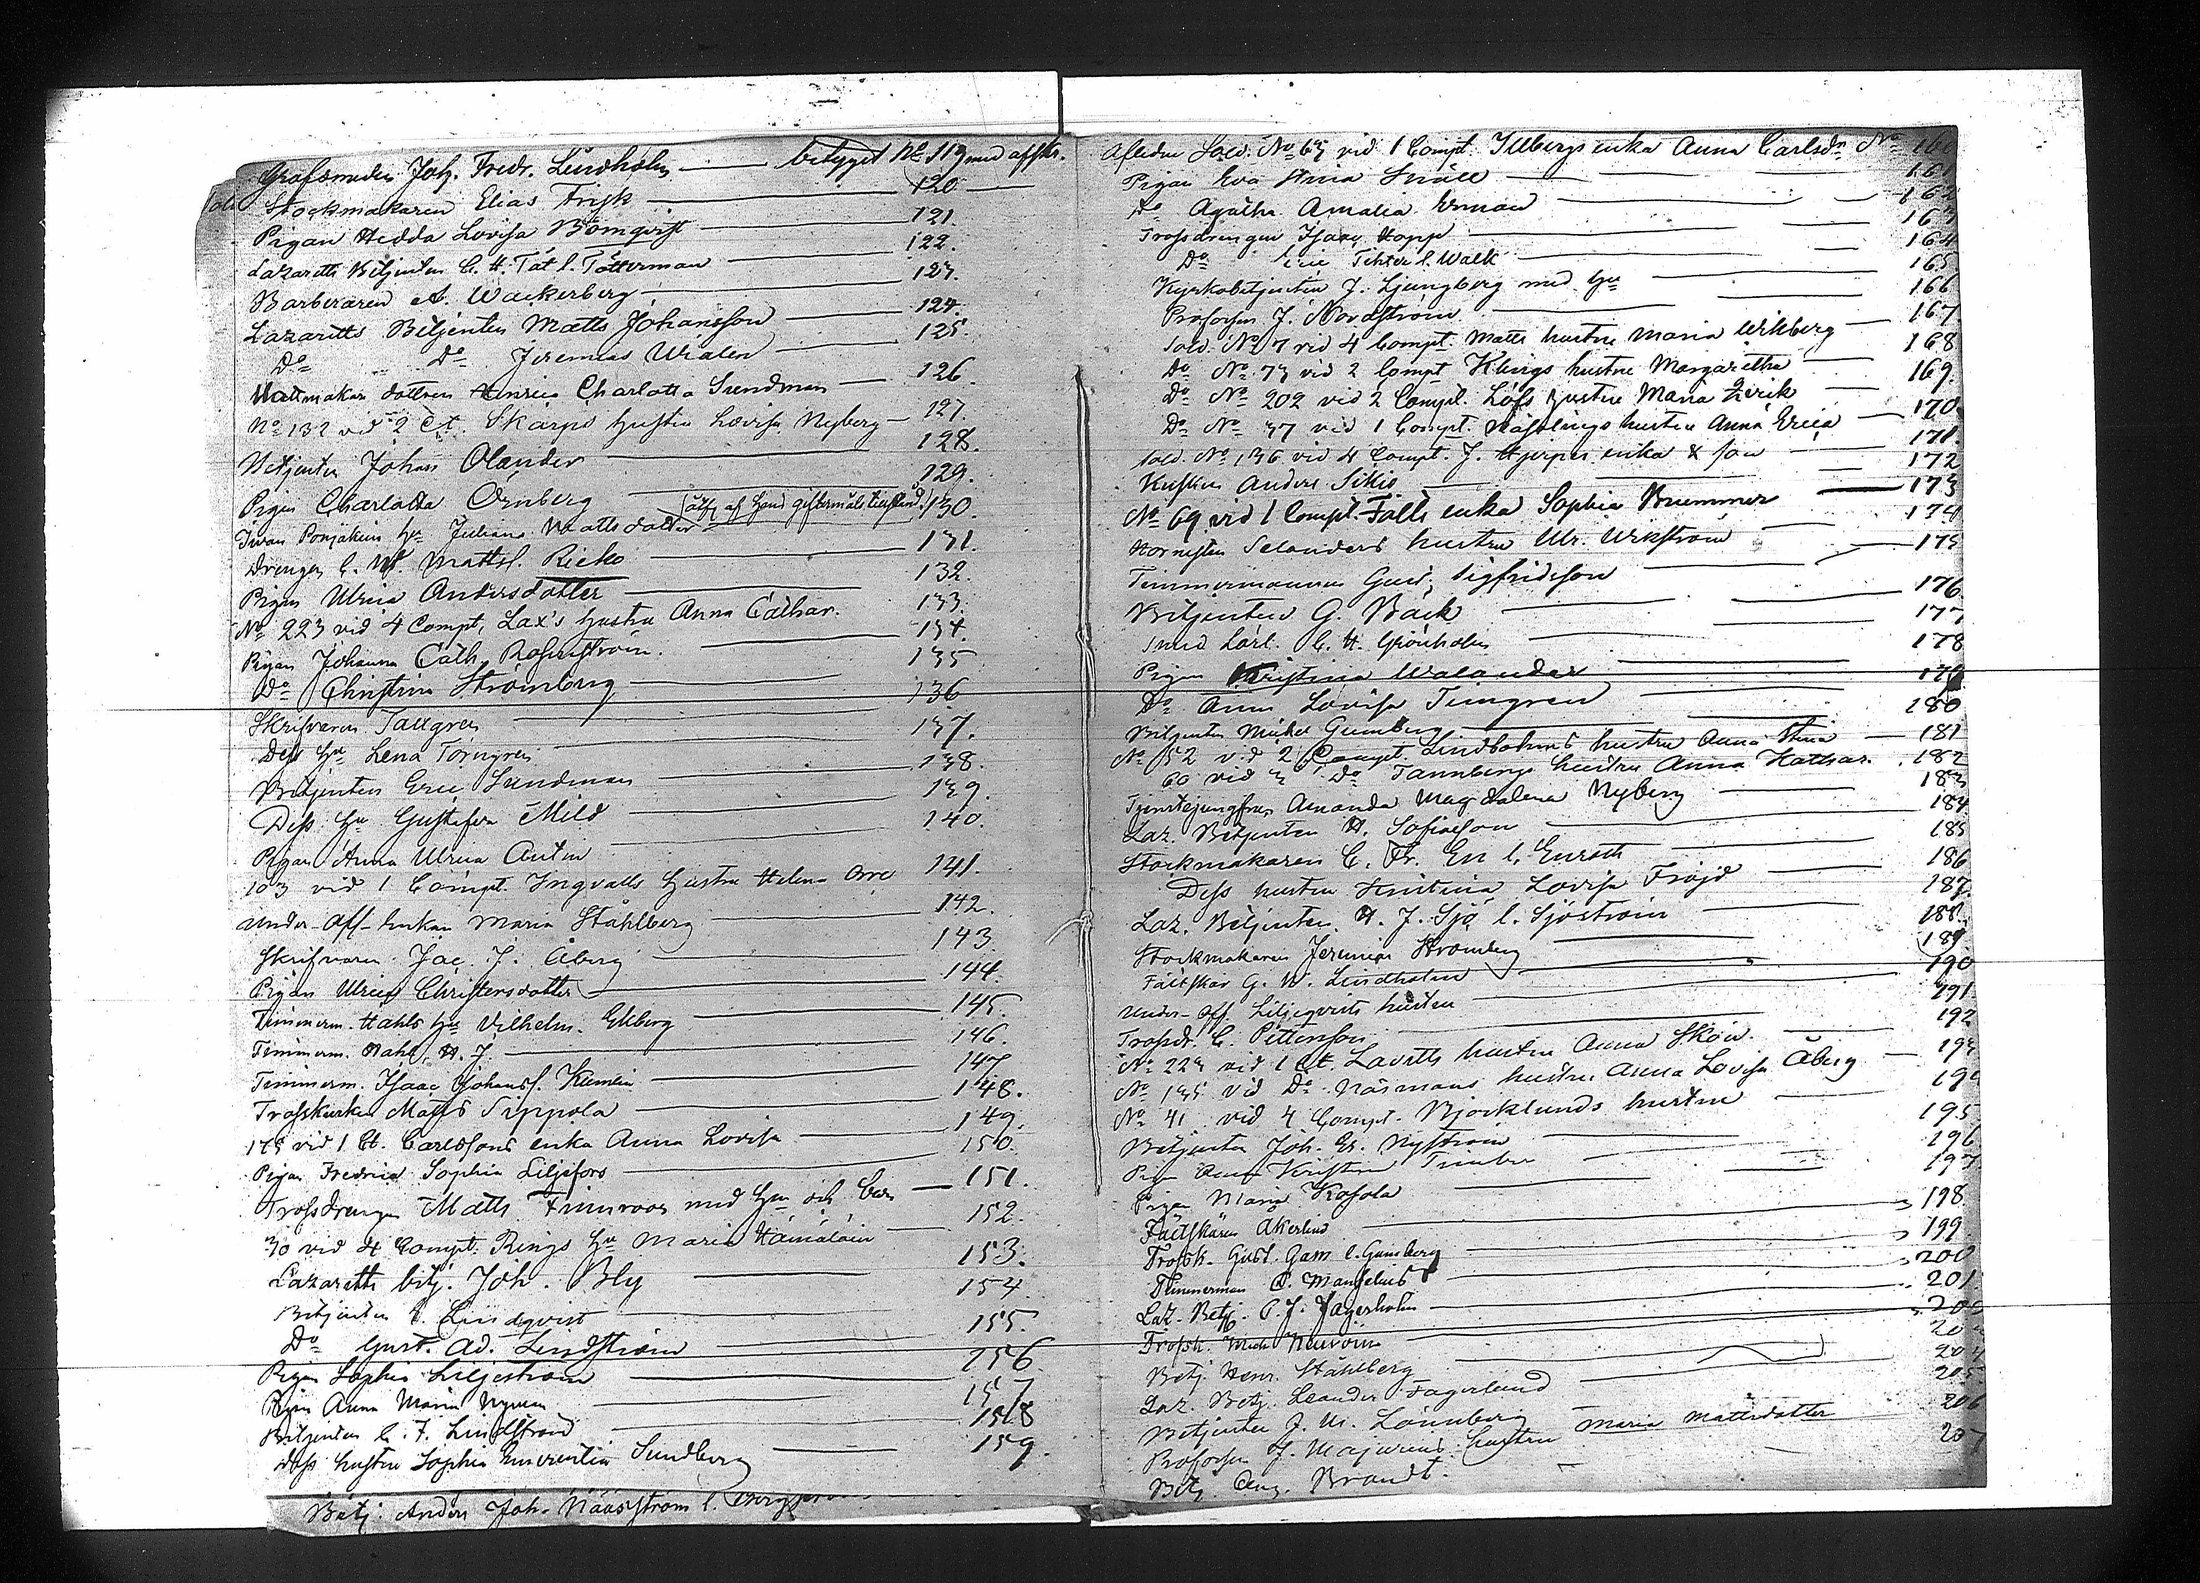 Grofsmeden Joh. Fredr. Lindholm betyget No 119 med afskr.
Stockmakaren Elias Frisk 120
Pigan Hedda Lovisa Bomqvist 121
Lazaretts Betjenten C. H. Tät l. Tötterman 122
Barberaren A. Wackerberg 123
Lazaretts Betjenten Matts Johansson 124
Do Do Jeremias Wialén 125
Hattmakar dottren Henrica Charlotta Sundman 126
No 132 vid 2 Ct. Skarps hustru Lovisa Nyberg 127
Betjenten Johan Olander 128
Pigan Charlotta Örnberg 129
Iwan Ponjakins hu Juliana Mattsdotter 130
Drengen C. W. Mattsl. Ricko 131
Pigan Ulrica Andersdotter 132
No 223 vid 4 Compt. Lax's hustru Anna Cathar. 133
Pigan Johanna Cath. Rosenström 134
Do Christina Strömberg 135
Skrifvaren Tallgren 136
Dess hu Lena Törngren 137
Betjenten Eric Sundman 138
Dess hu Gustafva Meld 139
Pigan Anna Ulrica Antin 140
103 vid 1 Compt. Ingvalls hustru Helena Orre 141
Under-Off-Enkan Maria Ståhlberg 142
Skrifvaren Jac. J. Åberg 143
Pigan Ulrica Christersdotter 144
Timmerm. Hahls hu Vilhelm. Ekberg 145
Timmerm. Hahl, H. J. 146
Timmerm. Isaac Johanss. Kumlin 147
Trosskusken Matts Sippola 148
175 vid 1 Ct. Carlssons enka Anna Lovisa 149
Pigan Fredrica Sophia Liljefors 150
Trossdrengen Matts Finnroos med hu och barn 151
30 vid 4 Compt. Rings hu Maria Hämäläin 152
Lazaretts betj. Joh. Bly 153
Betjenten C. Lindqvist 154
Do Gust. Ad. Lindström 155
Pigan Sophia Liljeström 156
Pigan Anna Maria Nyman 157
Betjenten C. F. Lindstrand 158
Dess hustru Sophia Emerentia Sundberg 159
Betj. Anders Joh. Nääsström l.
Afledne Sold. No 63 vid 1 Compt. Illbergs enka Anna Carlsdr No 160
Pigan Eva Stina Snäll 161
Do Agatha Amalia Ernman 162
Trossdrengen Isaac Hopp 163
Do Eric Tihter l. Walk 164
Kyrkobetjenten J. Ljungberg med hu 165
Profossen J. Nordström 166
Sold. No 7 vid 4 Compt. Matts hustru Maria Wikberg 167
Do No 73 vid 2 Compt. Klings hustru Margaretha 168
Do No 202 vid 2 Compt. Löfs hustru Maria Zierik 169
Do No 37 vid 1 Compt. hustru Anna Erica 170
Sold. No 136 vid 4 Compt. J. Hjerpes enka & son 171
Kusken Anders Sikiö 172
No 69 vid 1 Compt. Falls enka Sophia Brummer 173
Hornisten Selanders hustru Ulr. Wikström 174
Timmermannen Gust. Sigfridsson 175
Betjenten G. Bäck 176
Smed Lärl. C. H. Grönholm 177
Pigan Kristina Walander 178
Do Anna Lovisa Timgren 179
Betjenten Michel Gumberg 180
No 52 vid 2 Compt. Lindbohms hustru Anna Stina 181
60 vid 3 Do Tannbergs hustru Anna Kathar. 182
Tjenstejungfrun Amanda Magdalena Nyberg 183
Laz. Betjenten H. Sofiason 184
Stockmakaren C. Fr. En l. Enroth 185
Dess hustru Kristina Lovisa Fröjd 186
Laz. Betjenten H. J. Sjö l. Sjöström 187
Stockmakaren Jeremias Stromberg 188
Fältskär G. W. Lindholm 189
Under-Off. Liljeqvists hustru 190
Trossdr. C. Pettersson 191
No 223 vid 1 Ct. Lavetts hustru Anna Skön 192
No 135 vid Do Näsmans hustru Anna Lovisa Åberg 193
No 41 vid 4 Compt. Björcklunds hustru 194
Betjenten Joh. Er. Nyström 195
Pigan Anna Kristina Timber 196
Pigan Maria Kosola 197
Fältskären Åkerlind 198
Trossk. Gust. Gam l. Gamsberg 199
Timmerman C. Mangelius 200
Laz. Betj. C. J. Jägerholm 201
Trossk. Mich. Neuroin 202
Betj. Henr. Ståhlberg
Laz. Betj. Leander Fagerlund 204
Betjenten J. M. Lönnberg 205
Profossen J. Majurens hustru Maria Mattsdotter 206
Betj. Aug. Brandt. 207